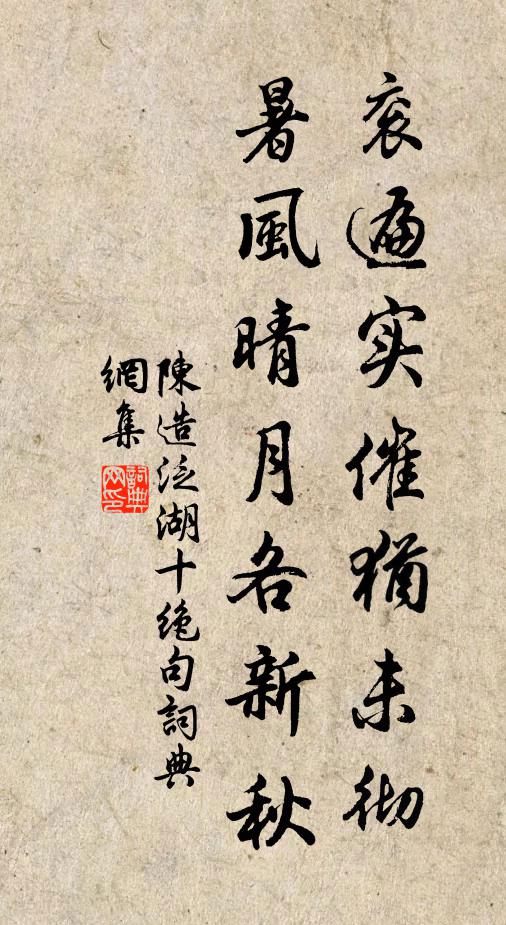 衮遍实催犹未彻
暑風晴月各新秋
陳造泛湖十绝句詞典
網集
詞典
网印